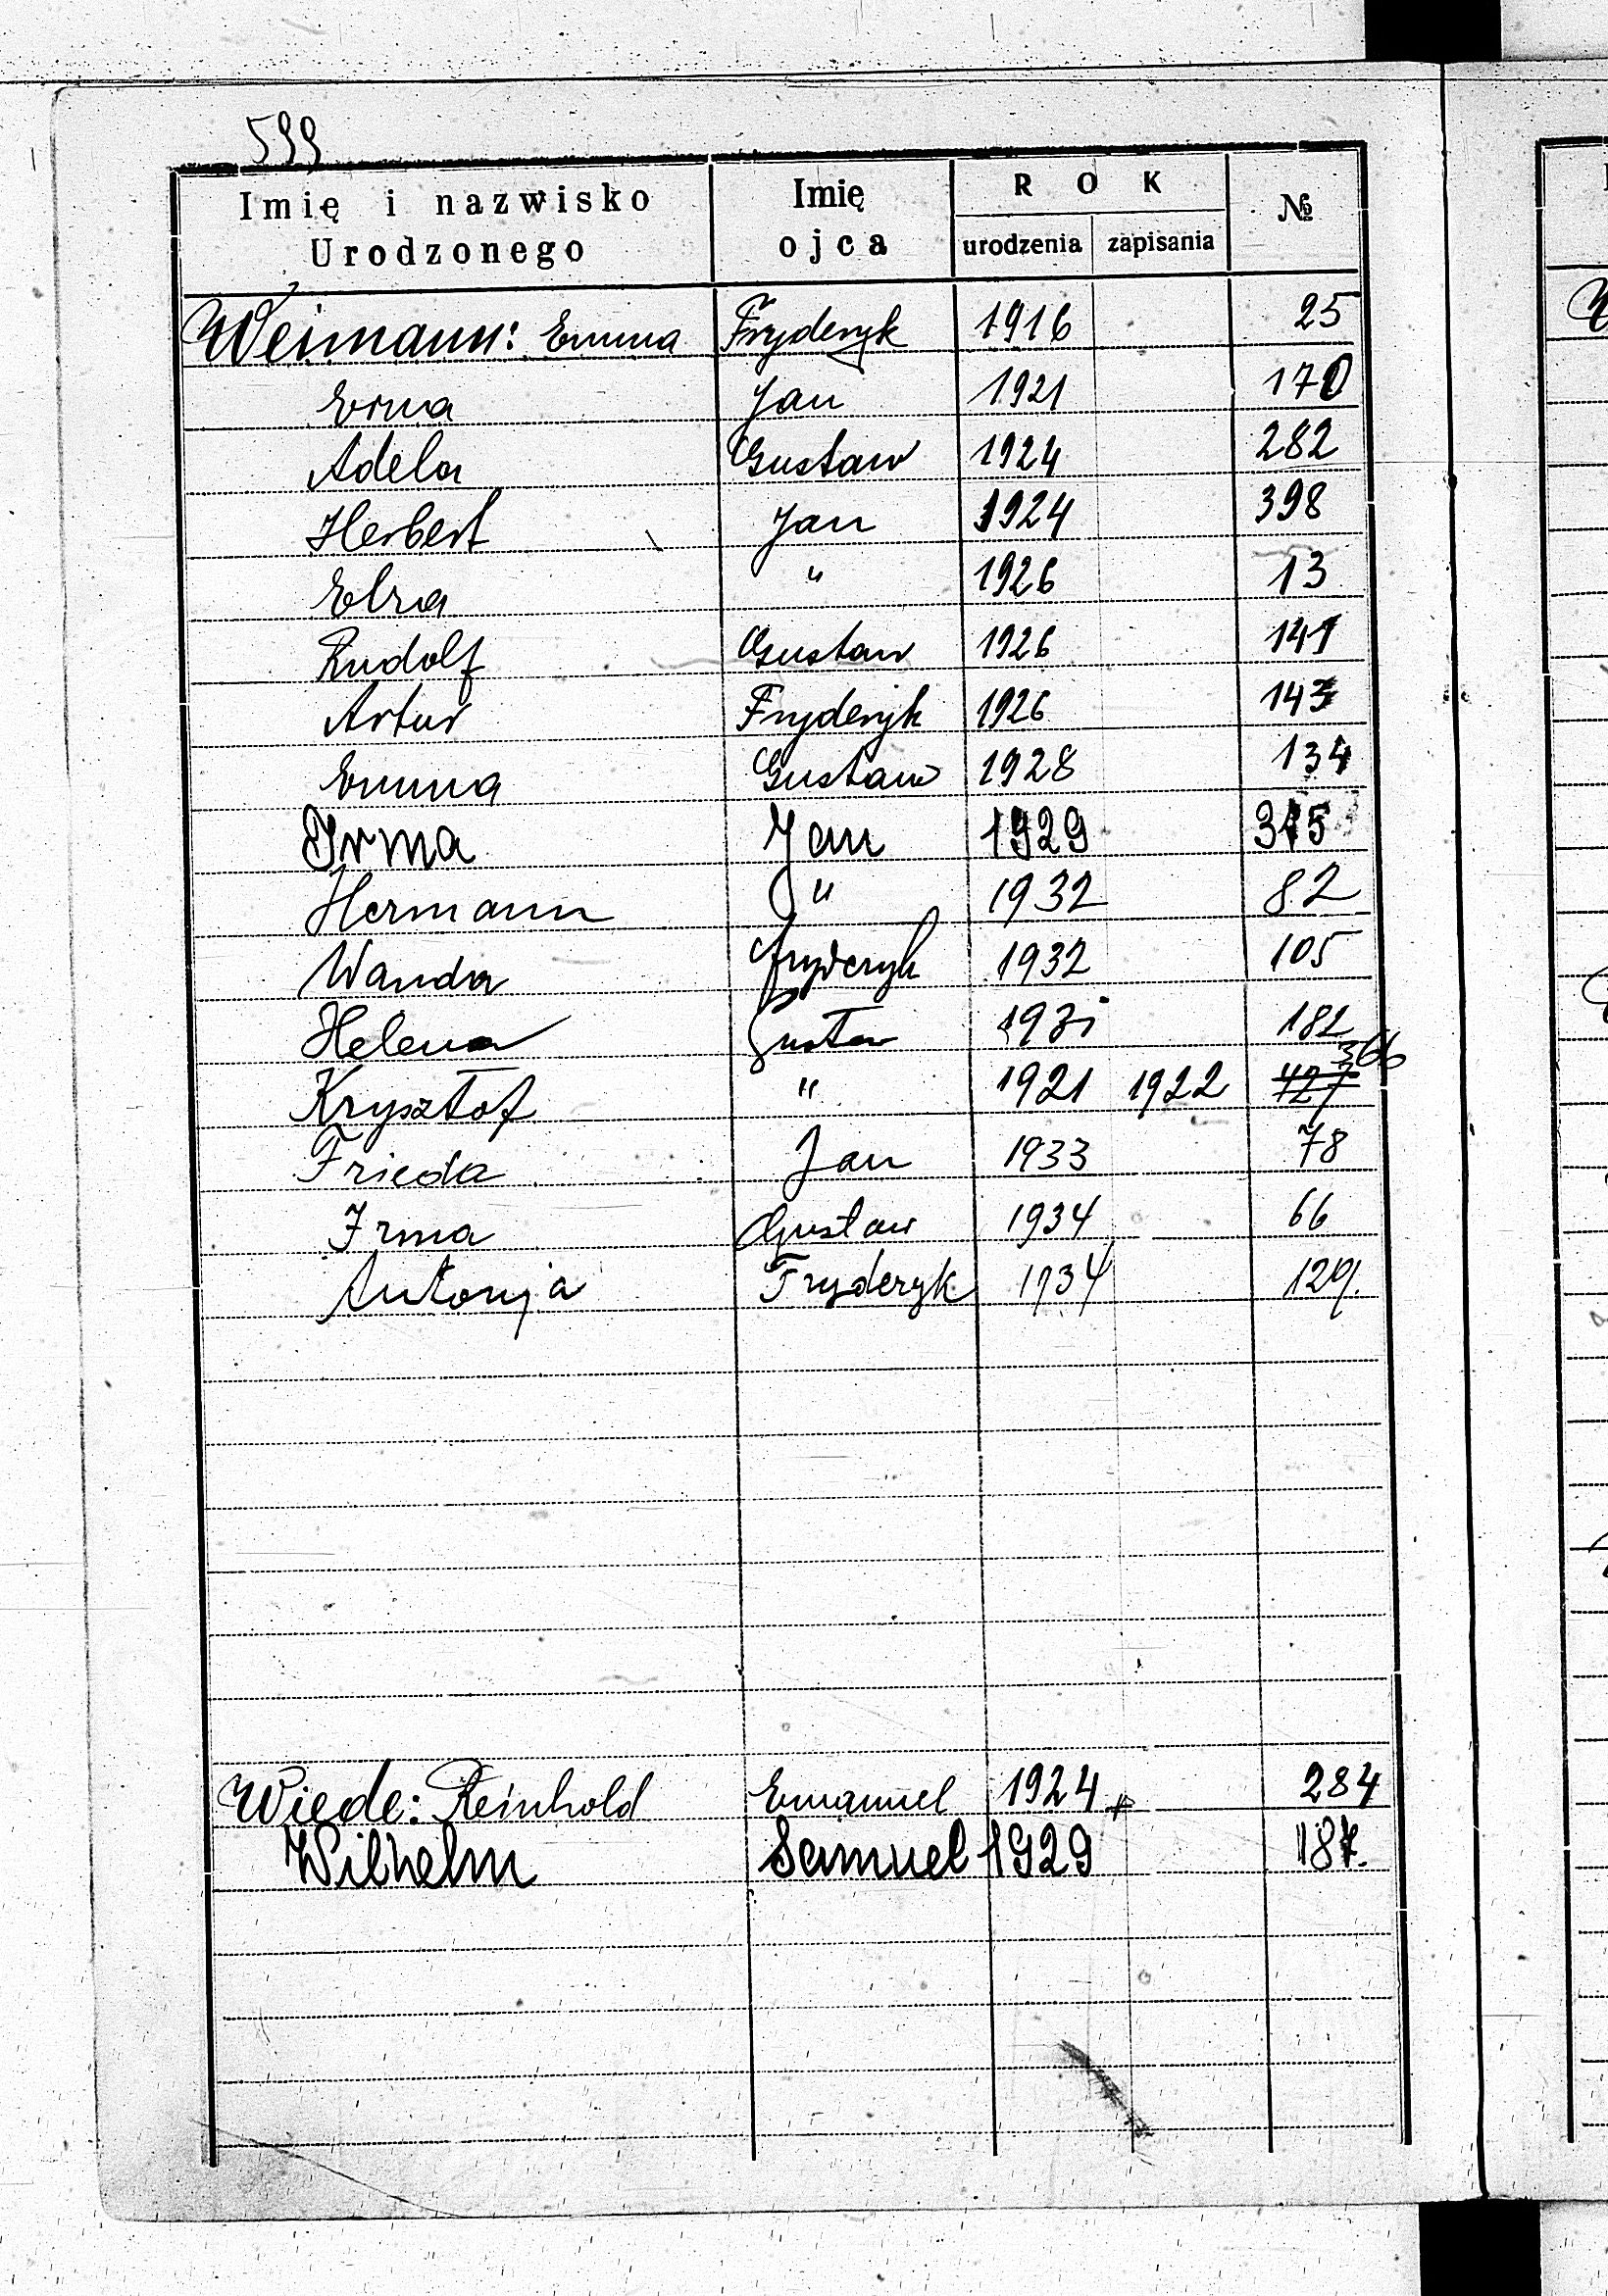 599
Imię i nazwisko Urodzonego Imię ojca ROK urodzenia zapisania №
Weimann: Emma Fryderyk 1916 25
Erna Jan 1921 170
Adela Gustaw 1924 282
Herbert Jan 1924 398
Elza " 1926 13
Rudolf Gustaw 1926 141
Artur Fryderyk 1926 143
Emma Gustaw 1928 134
Irma Jan 1929 315
Hermann " 1932 82
Wanda Fryderyk 1932 105
Helena Gustaw 1931 182
Krysztof " 1921 1922 427 366
Frieda Jan 1933 78
Irma Gustaw 1934 66
Antonja Fryderyk 1934 129.
Wiede: Reinhold Emanuel 1924 284
Wilhelm Samuel 1929 187.